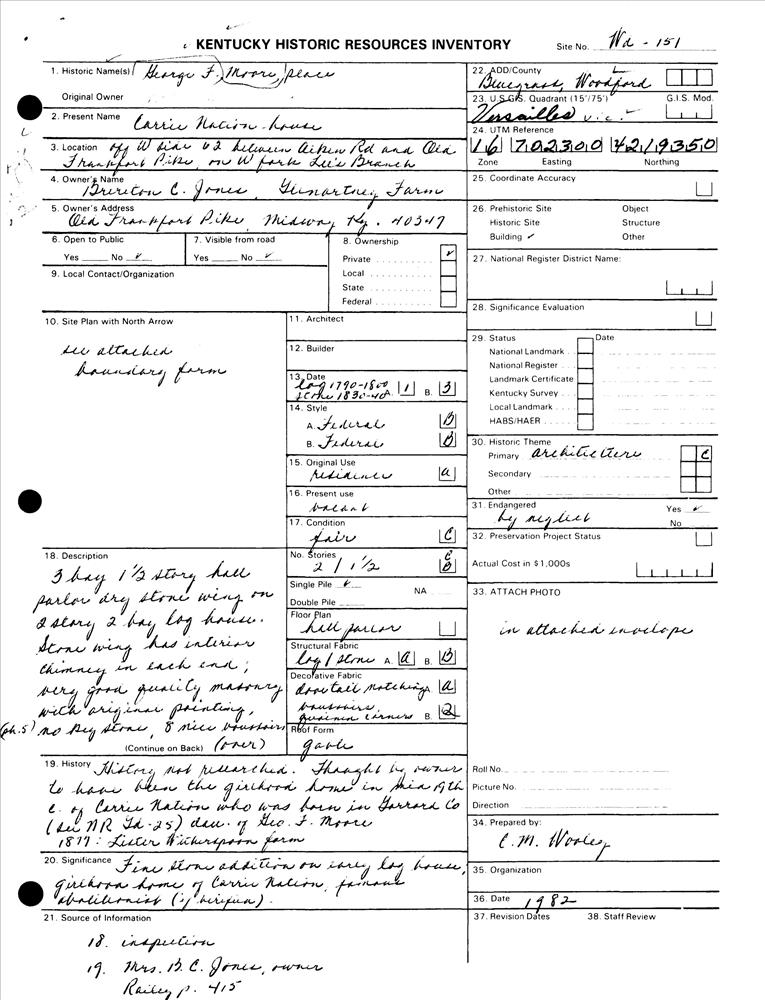 KENTUCKY HISTORIC RESOURCES INVENTORY
Site No. Wd - 151
1. Historic Name(s) George F. Moore, place
Original Owner
2. Present Name
Carrie Nation house
3. Location off W side 62 between Aiken Rd and Old
Frankfort Pike, on W fork Lee's Branch
4. Owner's Name
Brereton C. Jones, Airdrie
5. Owner's Address
Old Frankfort Pike, Midway Ky. 40347
6. Open to Public
Yes No ✓
7. Visible from road
Yes No ✓
8. Ownership
Private ✓
Local
State
Federal
9. Local Contact/Organization
10. Site Plan with North Arrow
see attached
boundary form
11. Architect
12. Builder
13. Date
log 1790-1800
stone 1830-40 A. 1 B. 3
14. Style
A. Federal B
B. Federal B
15. Original Use
residence a
16. Present use
vacant
17. Condition
fair C
18. Description
3 bay 1 1/2 story hall
parlor dry stone wing on
2 story 2 bay log house.
Stone wing has interior
chimney in each end;
very good quality masonry
with original pointing,
(ph.5) no key stone, 8 nice voussoirs
(Continue on Back) (over)
No. Stories
2 / 1 1/2 C B
Single Pile ✓ NA
Double Pile
Floor Plan
hall parlor
Structural Fabric
log / stone A. a B. B
Decorative Fabric
dovetail notchings a
voussoirs,
corners B. 2
Roof Form
gable
19. History History not researched. Thought by owner
to have been the girlhood home in mid 19th
c. of Carrie Nation who was born in Garrard Co
(see NR Gd-25) dau. of Geo. F. Moore
1877: Lister Witherspoon farm
20. Significance Fine stone addition on early log house,
girlhood home of Carrie Nation, famous
abolitionist (if verified).
21. Source of Information
18. inspection
19. Mrs. B. C. Jones, owner
Railey p. 415
22. ADD/County
Bluegrass, Woodford
23. U.S.G.S. Quadrant (15'/75') G.I.S. Mod.
Versailles
24. UTM Reference
16 702300 4219350
Zone Easting Northing
25. Coordinate Accuracy
26. Prehistoric Site Object
Historic Site Structure
Building ✓ Other
27. National Register District Name:
28. Significance Evaluation
29. Status Date
National Landmark
National Register
Landmark Certificate
Kentucky Survey
Local Landmark
HABS/HAER
30. Historic Theme
Primary architecture C
Secondary
Other
31. Endangered Yes ✓
by neglect No
32. Preservation Project Status
Actual Cost in $1,000s
33. ATTACH PHOTO
in attached envelope
Roll No.
Picture No.
Direction
34. Prepared by:
C. M. Wooley
35. Organization
36. Date 1982
37. Revision Dates 38. Staff Review